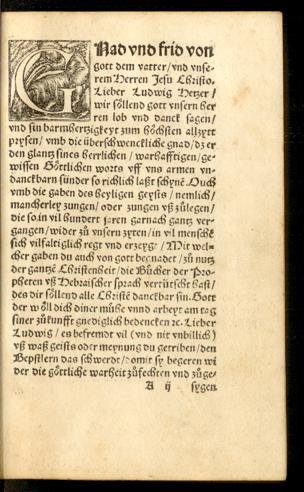 Gnad vnd frid von
gott dem vatter/vnd vnse-
rem Herren Jesu Christo.
Lieber Ludwig Hetzer/
wir söllend gott vnsern her
ren lob vnd danck sagen/
vnd sin barmhertzigkeyt zum höchsten allzytt
prysen/ vmb die überschwenckliche gnad/dz er
den glantz sines herrlichen/ warhafftigen/ge-
wissen Göttlichen worts vff vns armen vn-
danckbarn sünder so richlich laßt schynē. Ouch
vmb die gaben des heyligen geysts / nemlich/
mancherley zungen/ oder zungen vß zůlegen/
die so in vil hundert jaren garnach gantz ver-
gangen/wider zů vnsern zyten/in vil menschē
sich vilfaltiglich regt vnd erzeygt/ Mit wel-
cher gaben du auch von gott begnadet/zů nutz
der gantzē Christenheit/die Bücher der Pro-
pheten vß Hebraischer sprach verrütscht hast/
des dir söllend alle Christē danckbar sin. Gott
der wöll dich diner mühe vnnd arbeyt am tag
siner zůkunfft gnediglich bedencken ꝛc. Lieber
Ludwig/ es befremdt vil (vnd nit vnbillich)
vß waß geists oder meynung du getriben/den
Bepstlern das schwerdt/domit sy begeren wi
der die göttliche warheit zůfechten vnd zůge-
A ij sygen